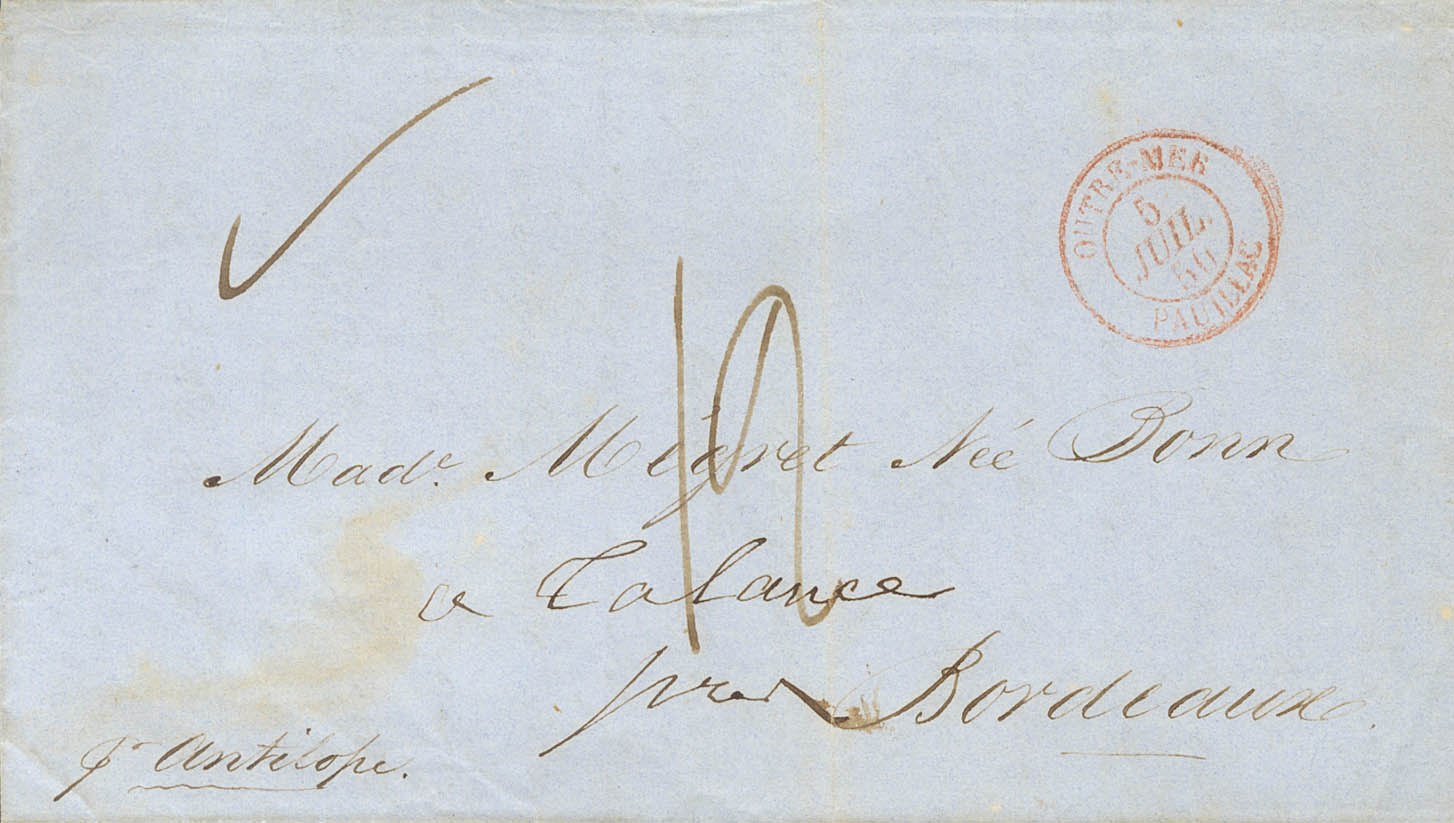 OUTRE-MER
5
JUIL.
56
PAUILLAC
12
Made. Migret Née Bonn
a Talance
près Bordeaux.
pr Antilope.